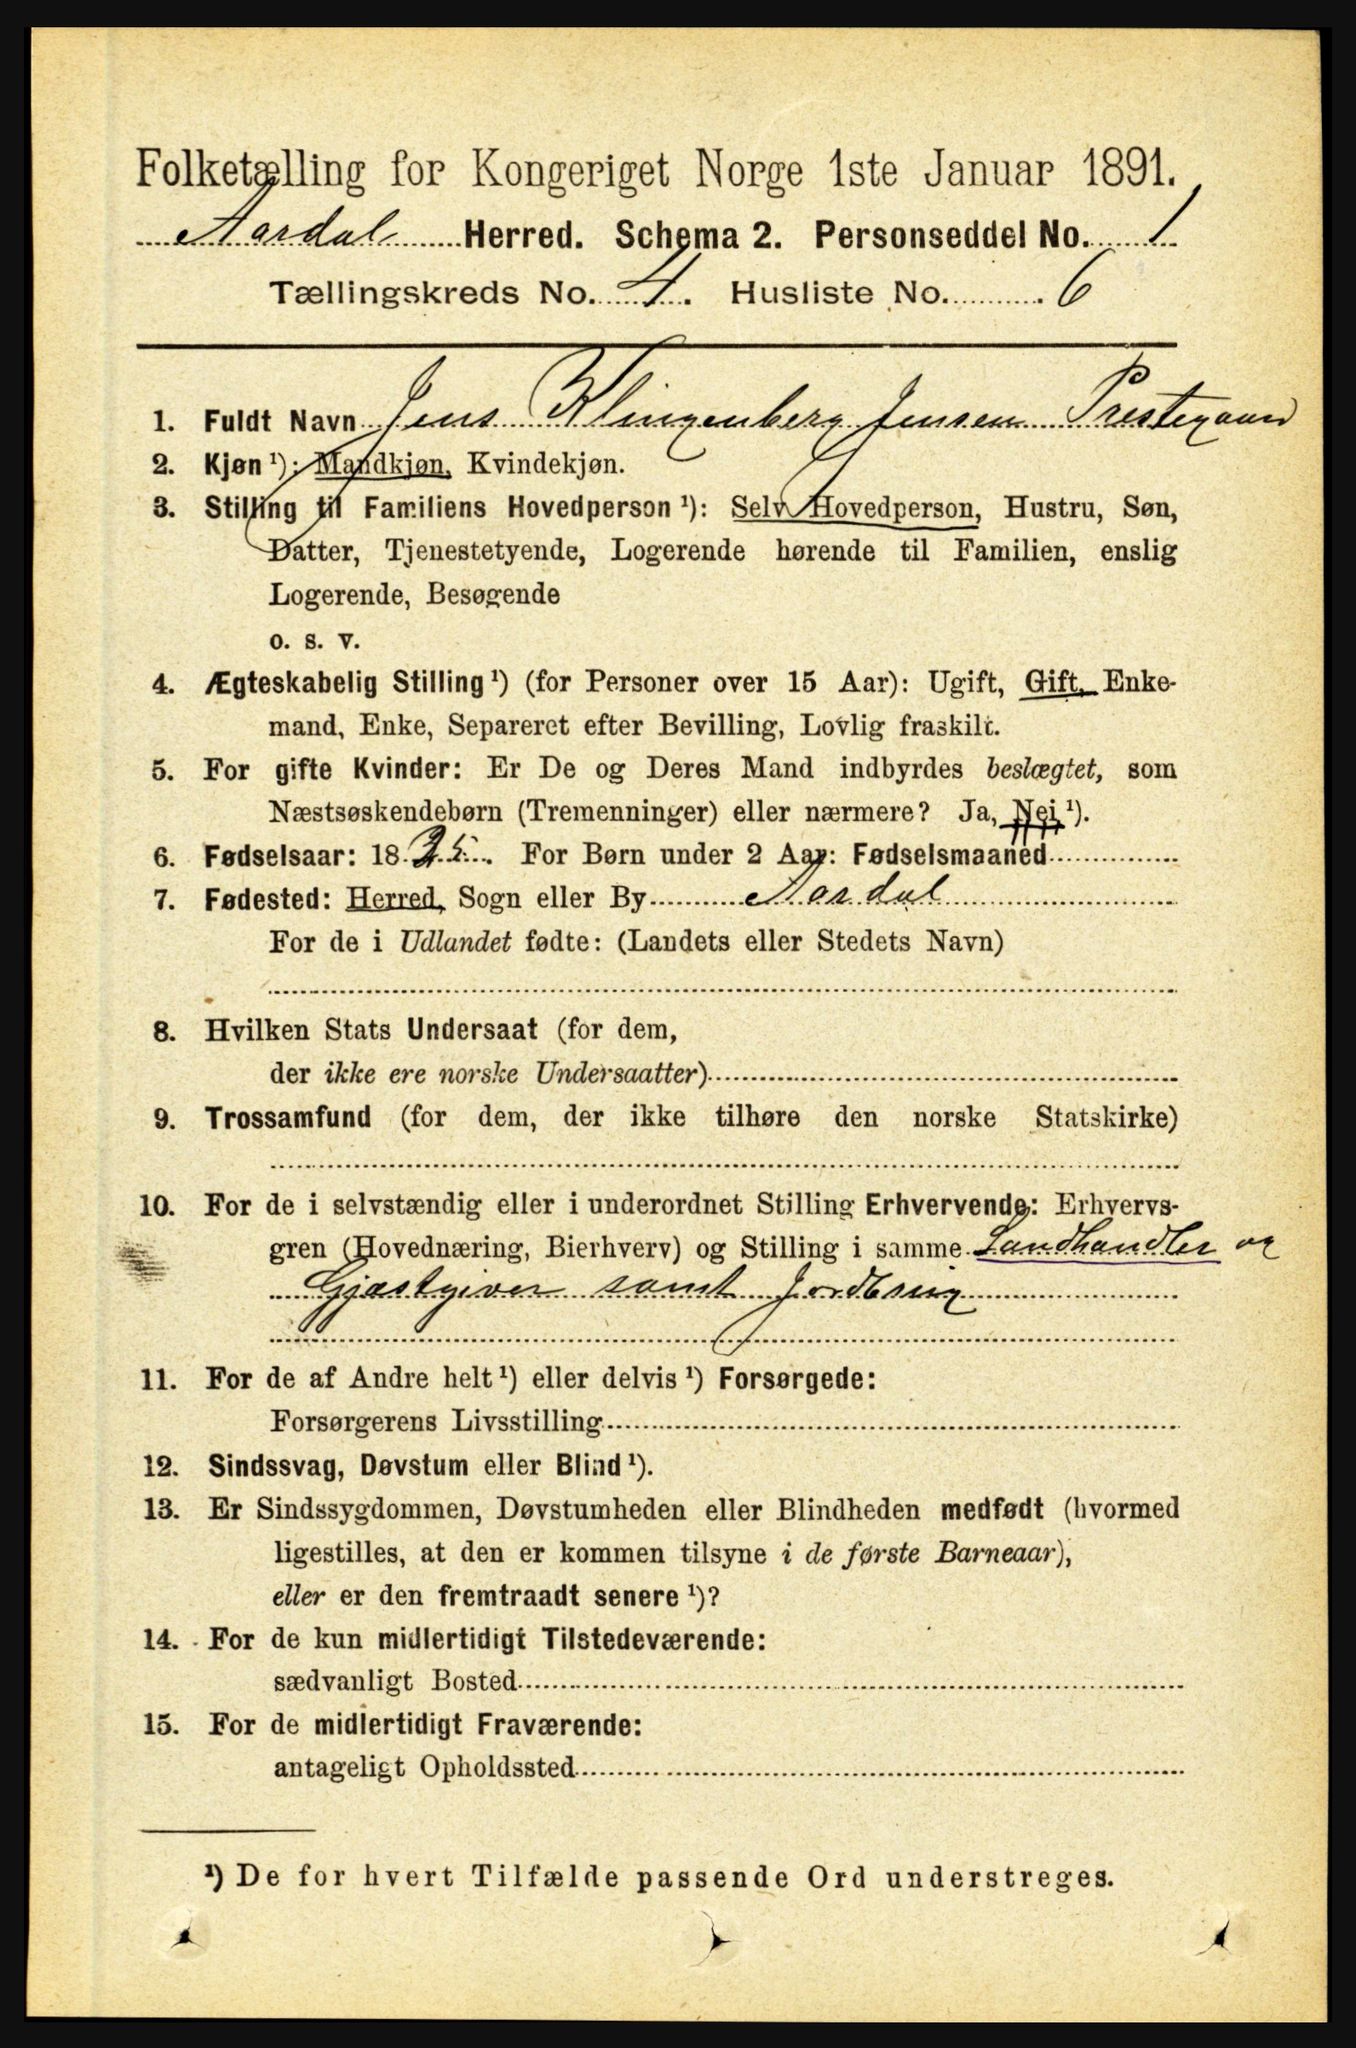 Folketælling for Kongeriget Norge 1ste Januar 1891.
Aardal Herred. Schema 2. Personseddel No. 1
Tællingskreds No. 4. Husliste No. 6
1. Fuldt Navn Jens Klingenberg Jensen Prestegaard
2. Kjøn ¹): Mandkjøn, Kvindekjøn.
3. Stilling til Familiens Hovedperson ¹): Selv Hovedperson, Hustru, Søn,
Datter, Tjenestetyende, Logerende hørende til Familien, enslig
Logerende, Besøgende
o. s. v.
4. Ægteskabelig Stilling ¹) (for Personer over 15 Aar): Ugift, Gift, Enke-
mand, Enke, Separeret efter Bevilling, Lovlig fraskilt.
5. For gifte Kvinder: Er De og Deres Mand indbyrdes beslægtet, som
Næstsøskendebørn (Tremenninger) eller nærmere? Ja, Nei ¹).
6. Fødselsaar: 18 For Børn under 2 Aar: Fødselsmaaned
7. Fødested: Herred, Sogn eller By Aardal
For de i Udlandet fødte: (Landets eller Stedets Navn)
8. Hvilken Stats Undersaat (for dem,
der ikke ere norske Undersaatter)
9. Trossamfund (for dem, der ikke tilhøre den norske Statskirke)
10. For de i selvstændig eller i underordnet Stilling Erhvervende: Erhvervs-
gren (Hovednæring, Bierhverv) og Stilling i samme Landhandler og
Gjæstgiver samt Jordbrug
11. For de af Andre helt ¹) eller delvis ¹) Forsørgede:
Forsørgerens Livsstilling
12. Sindssvag, Døvstum eller Blind ¹).
13. Er Sindssygdommen, Døvstumheden eller Blindheden medfødt (hvormed
ligestilles, at den er kommen tilsyne i de første Barneaar),
eller er den fremtraadt senere ¹)?
14. For de kun midlertidigt Tilstedeværende:
sædvanligt Bosted
15. For de midlertidigt Fraværende:
antageligt Opholdssted
¹) De for hvert Tilfælde passende Ord understreges.